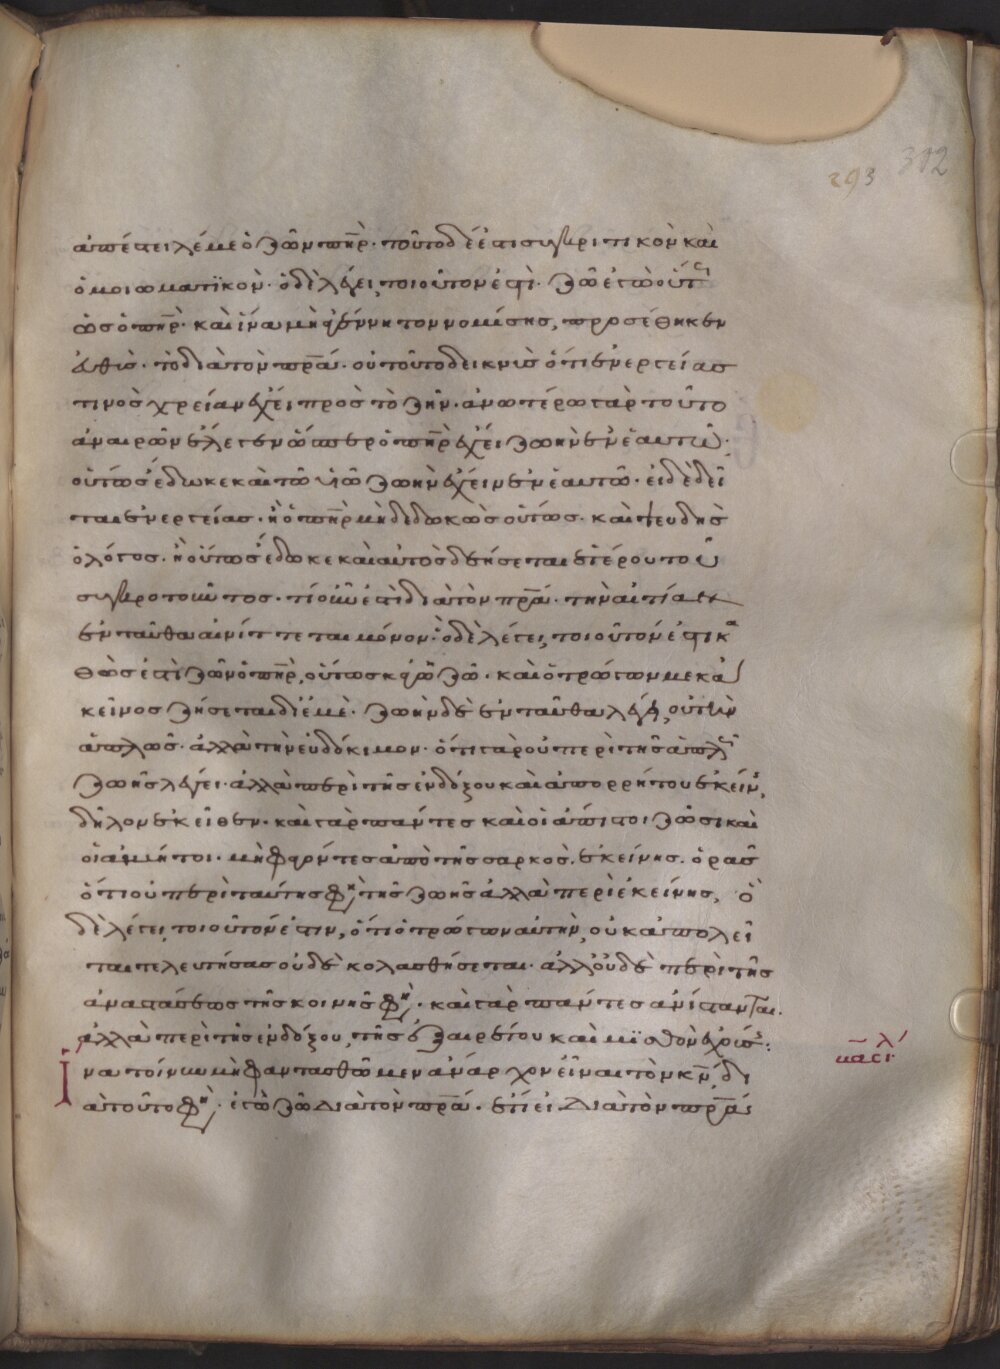 293 312
ἀπέστειλέ με ὁ ζῶν πη̄ρ· τοῦτο δέ ἐστι συγκριτικὸν καὶ
ὁμοιωματϊκὸν· ὃ δὲ λέγει, τοιοῦτον ἐστὶ· ζῶ ἐγὼ οὕτ
ὡς ὁ πη̄ρ· καὶ ἵνα μὴ ἀγέννητον νομίσης, προσέθηκεν
εὐθὺς· τὸ διὰ τὸν πρ̄α· οὐ τοῦτο δεικνὺς ὅτι ἐνεργείας
τινὸς χρείαν ἔχει πρὸς τὸ ζῆν· ἀνωτέρω γὰρ τοῦτο
ἀναιρῶν ἔλεγεν ὥσπερ ὁ πη̄ρ ἔχει ζωὴν ἐν ἑαυτῶ·
οὕτως ἔδωκε καὶ τῶ υἱῶ ζωὴν ἔχειν ἐν ἑαυτῶ· εἰ δὲ δεῖ
ται ἐνεργείας· ἢ ὁ πη̄ρ μὴ δεδωκὼς οὕτως· καὶ ψευδὴς
ὁ λόγος· ἢ οὕτως ἔδωκε καὶ αὐτὸς δεήσεται ἑτέρου τοῦ
συγκροτοῦντος· τί οὖν ἐστὶ διὰ τὸν πρ̄α· τὴν αἰτίαν
ἐνταῦθα αἰνίττεται μόνον· ὃ δὲ λέγει, τοιοῦτόν ἐστι κα
θὼς ἐστὶ ζῶν ὁ πη̄ρ, οὕτως κἀγὼ ζῶ· καὶ ὁ τρώγων με κἀ
κεῖνος ζήσεται δι' ἐμὲ· ζωὴν δὲ ἐνταῦθα λέγει, οὐ τὴν
ἁπλῶς· ἀλλὰ τὴν εὐδόκιμον· ὅτι γὰρ οὐ περὶ τῆς ἁπλῶς
ζωῆς λέγει· ἀλλὰ περὶ τῆς ἐνδόξου καὶ ἀπορρήτου ἐκείνης,
δῆλον ἐκεῖθεν· καὶ γὰρ πάντες καὶ οἱ ἄπιστοι ζῶσι καὶ
οἱ ἀμύητοι· μὴ φαγόντες ἀπὸ τῆς σαρκὸς ἐκείνης· ὁρᾶς
ὅτι οὐ περὶ ταύτης φη τῆς ζωῆς ἀλλὰ περὶ ἐκείνης, ὃ
δὲ λέγει, τοιοῦτόν ἐστιν, ὅτι ὁ τρώγων αὐτὴν, οὐκ ἀπολεῖ
ται τελευτήσας οὐδὲ κολασθήσεται· ἀλλ' οὐδὲ περὶ τῆς
ἀναστάσεως τῆς κοινῆς φη· καὶ γὰρ πάντες ἀνίστανται·
ἀλλὰ περὶ τῆς ἐνδόξου, τῆς ἐξαιρέτου καὶ μισθὸν ἐχούσης:
Ἵνα τοίνυν μὴ φαντασθῶμεν ἄναρχον εἶναι τὸν κν̄, δι
ὰ τοῦτο φη· ἐγὼ ζῶ διὰ τὸν πρ̄α· ἐπεὶ διὰ τὸν πρ̄α